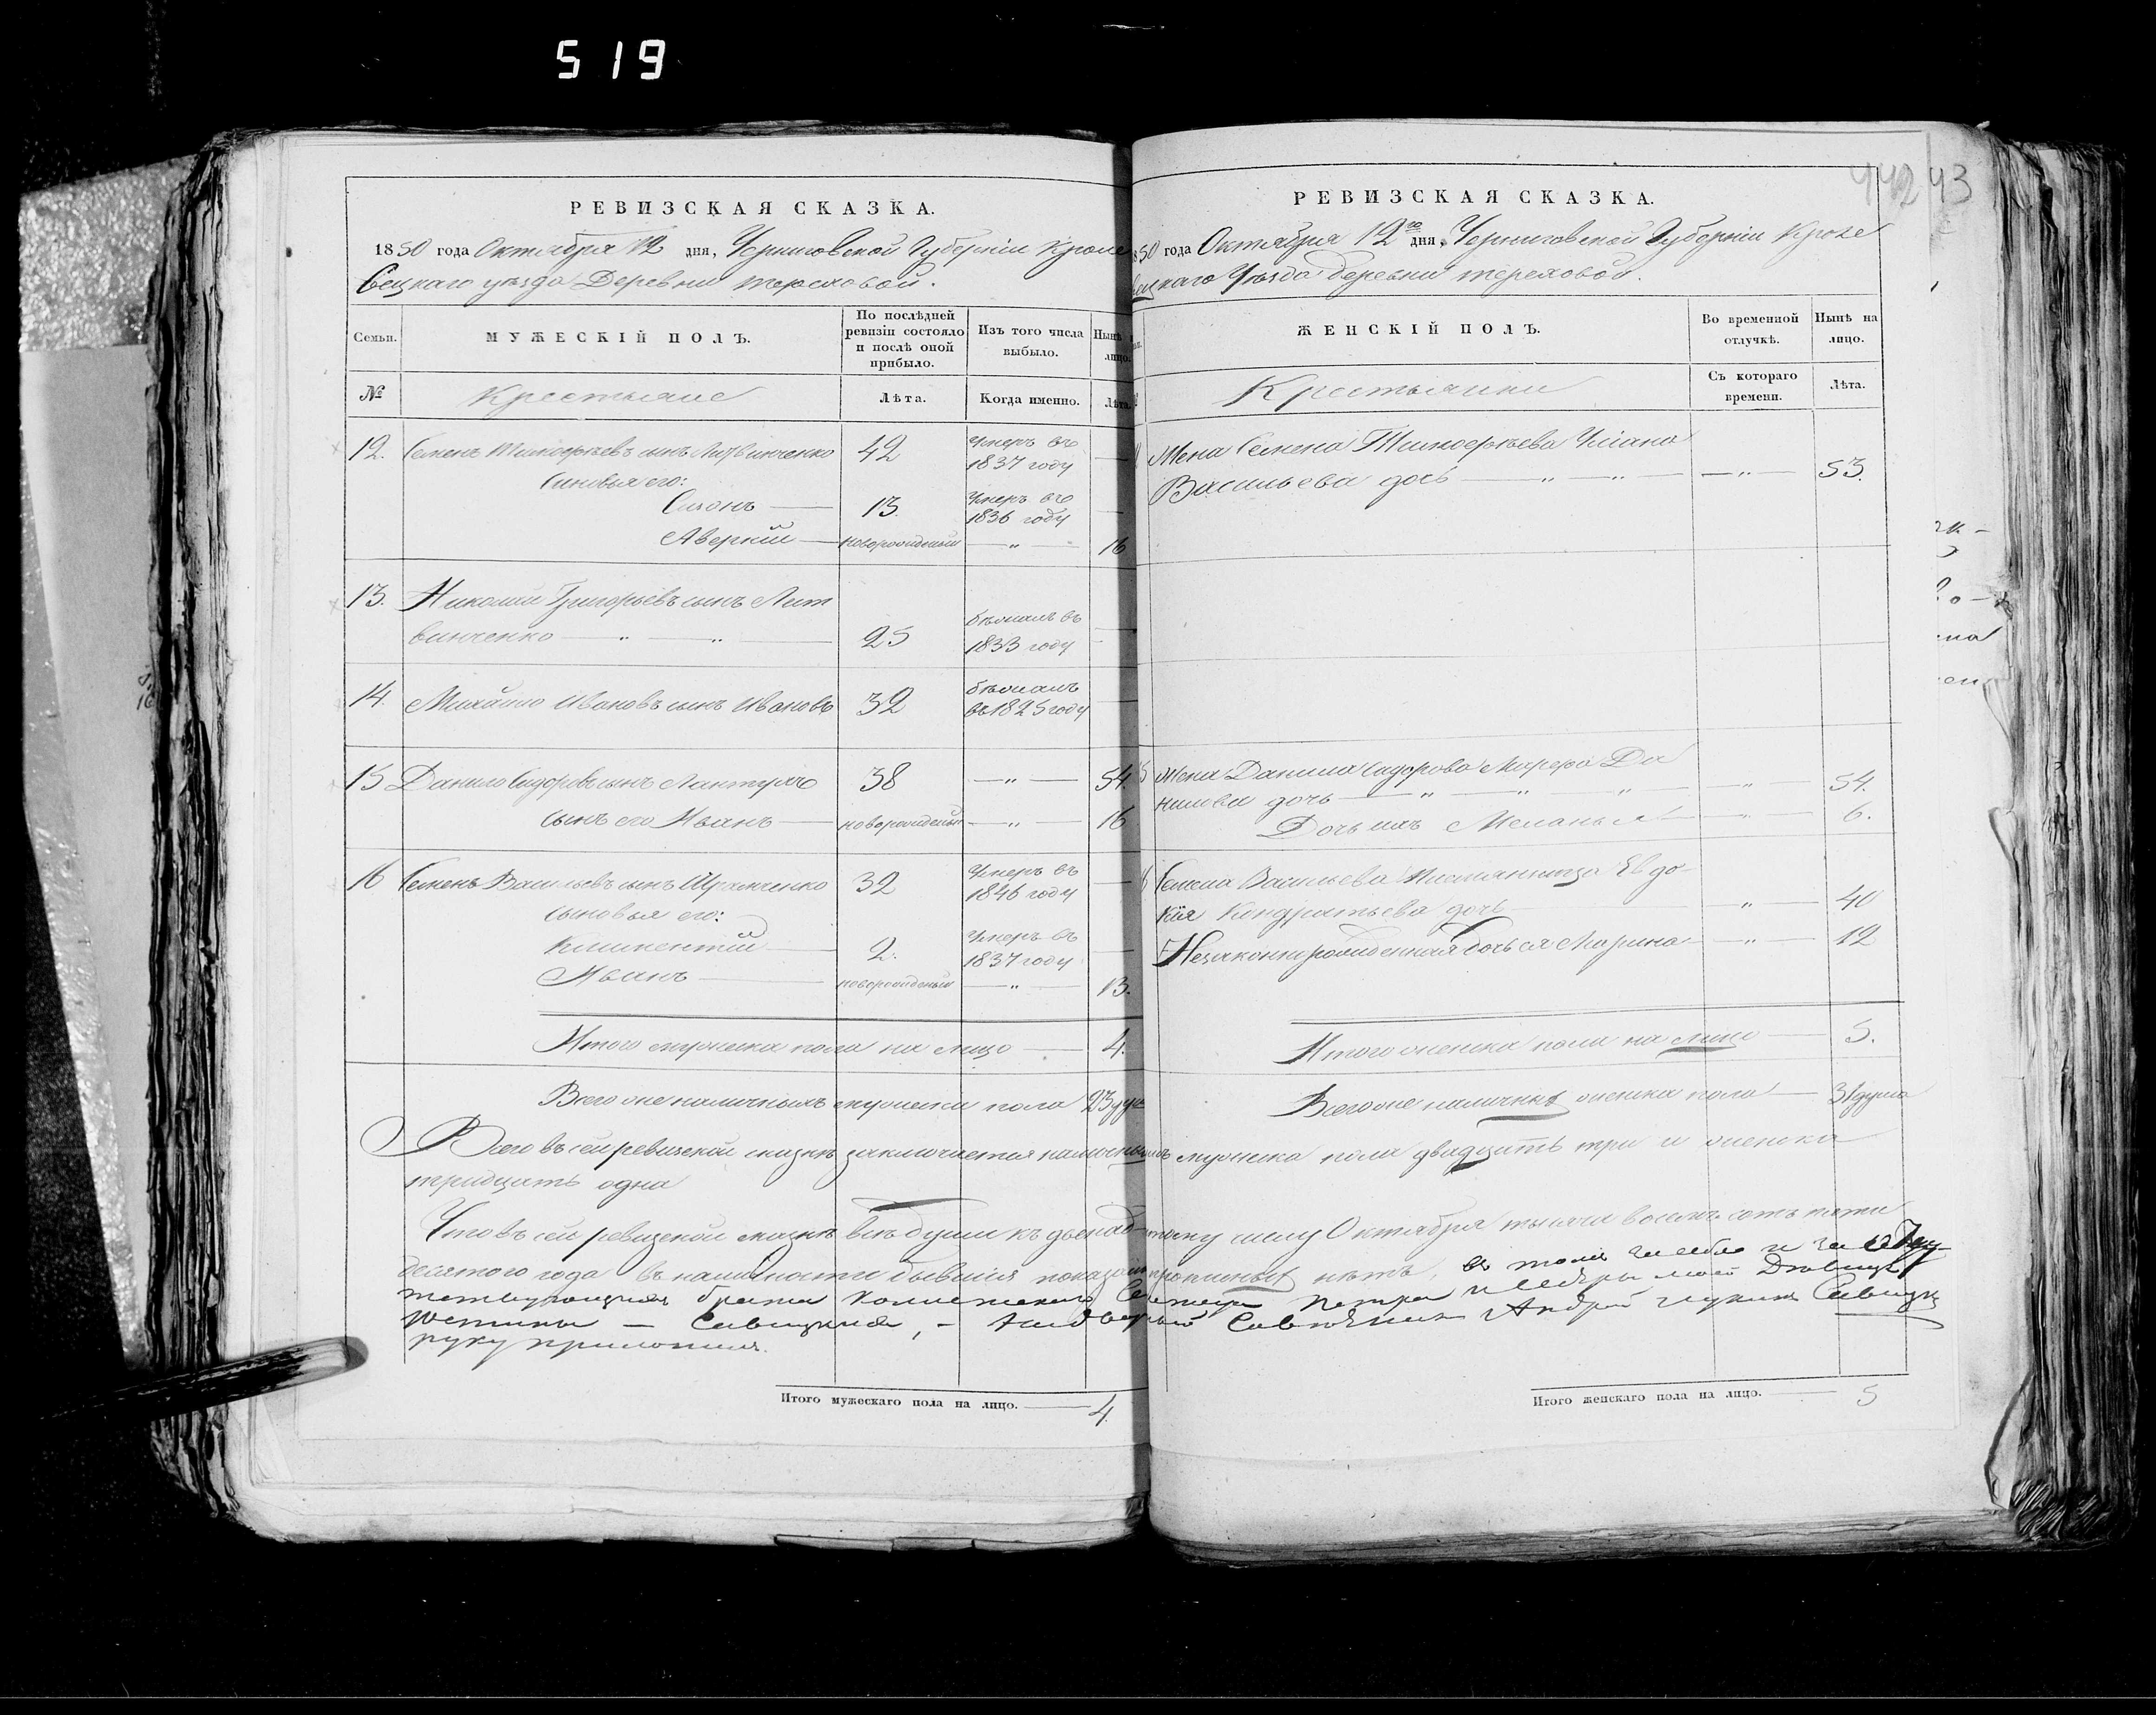 519
РЕВИЗСКАЯ СКАЗКА.
1850 года Октября 12 дня, Черниговской Губерніи Кроле
вецкаго уезда Деревни Тереховой.
Семьи.
МУЖЕСКІЙ ПОЛЪ.
По послѣдней ревизіи состояло и послѣ оной прибыло.
Изъ того числа выбыло.
Нынѣ лицо.
№
Крестьяне
Лѣта.
Когда именно.
Лѣта.
12. Семенъ Тимофеевъ сынъ Литвинченко 42 Умеръ въ 1837 году —
Сыновья его:
13. Умеръ въ 1836 году —
Аверкій — новорожденый — " — 16
13. Николай Григорьевъ сынъ Лит
винченко — " — " — 25 бѣжалъ въ 1833 году —
14. Михайло Ивановъ сынъ Ивановъ 32 бѣжалъ въ 1825 году —
15 Данило Сидоровъ сынъ Лантухъ 38 — " — 54.
сынъ его Иванъ — новорожденый — " — 16
16 Семенъ Васильевъ сынъ 32 Умеръ въ 1846 году —
сыновья его:
Климентій — 2. Умеръ въ 1837 году —
Иванъ — новорожденый — " — 13.
Итого мужеска пола на лицо — 4.
Всего же наличныхъ мужеска пола 23
Итого мужескаго пола на лицо. — 4.
442 43
РЕВИЗСКАЯ СКАЗКА.
50 года Октября 12го дня, Черниговской Губерніи Кроле
вецкаго Уѣзда деревни Тереховой.
ЖЕНСКІЙ ПОЛЪ.
Во временной отлучкѣ.
Нынѣ на лицо.
Крестьянки
Съ котораго времени.
Лѣта.
Жена Семена Тимофѣева Уліана
Васильева дочь — " — " — — " — 53.
Жена Данила Сидорова Марфа Да
нилова дочь — " — " — " — — " — 54.
Дочь ихъ Меланья — " — 6.
Семена Васильева Евдо-
кія Кондратьева дочь — " — 40
Незаконнорожденная дочь ея Марина — " — 12
Итого женска пола на лицо — 5.
Всего же наличныхъ женска пола — 31 душа
Всего въ сей ревизской сказкѣ заключается наличныхъ мужеска пола двадцать три и женска
тридцать одна
Что въ сей ревизской сказкѣ всѣ души къ двенадцатому числу Октября тысяча восемь сотъ пяти
десятого года въ наличности бывшія показаны и пропиныхъ нѣтъ, въ томъ за себя и за
брата Коллежскаго Петра и сестры моей Девицы
Савицкихъ, Надворный Совѣтникъ Андрей Савицкій
руку приложилъ.
Итого женскаго пола на лицо. — 5